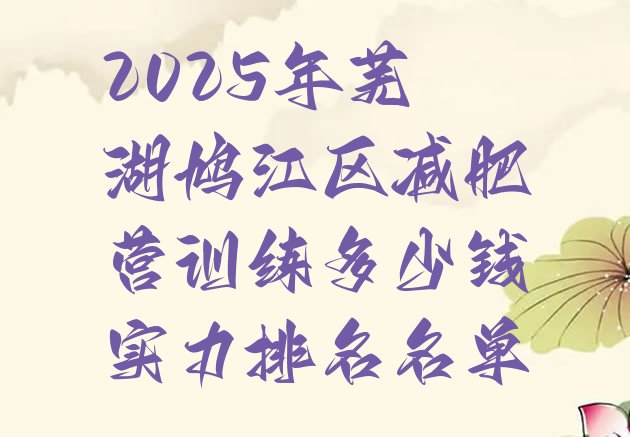 2025年芜
湖鸠江区减肥
营训练多少钱
实力排名名单